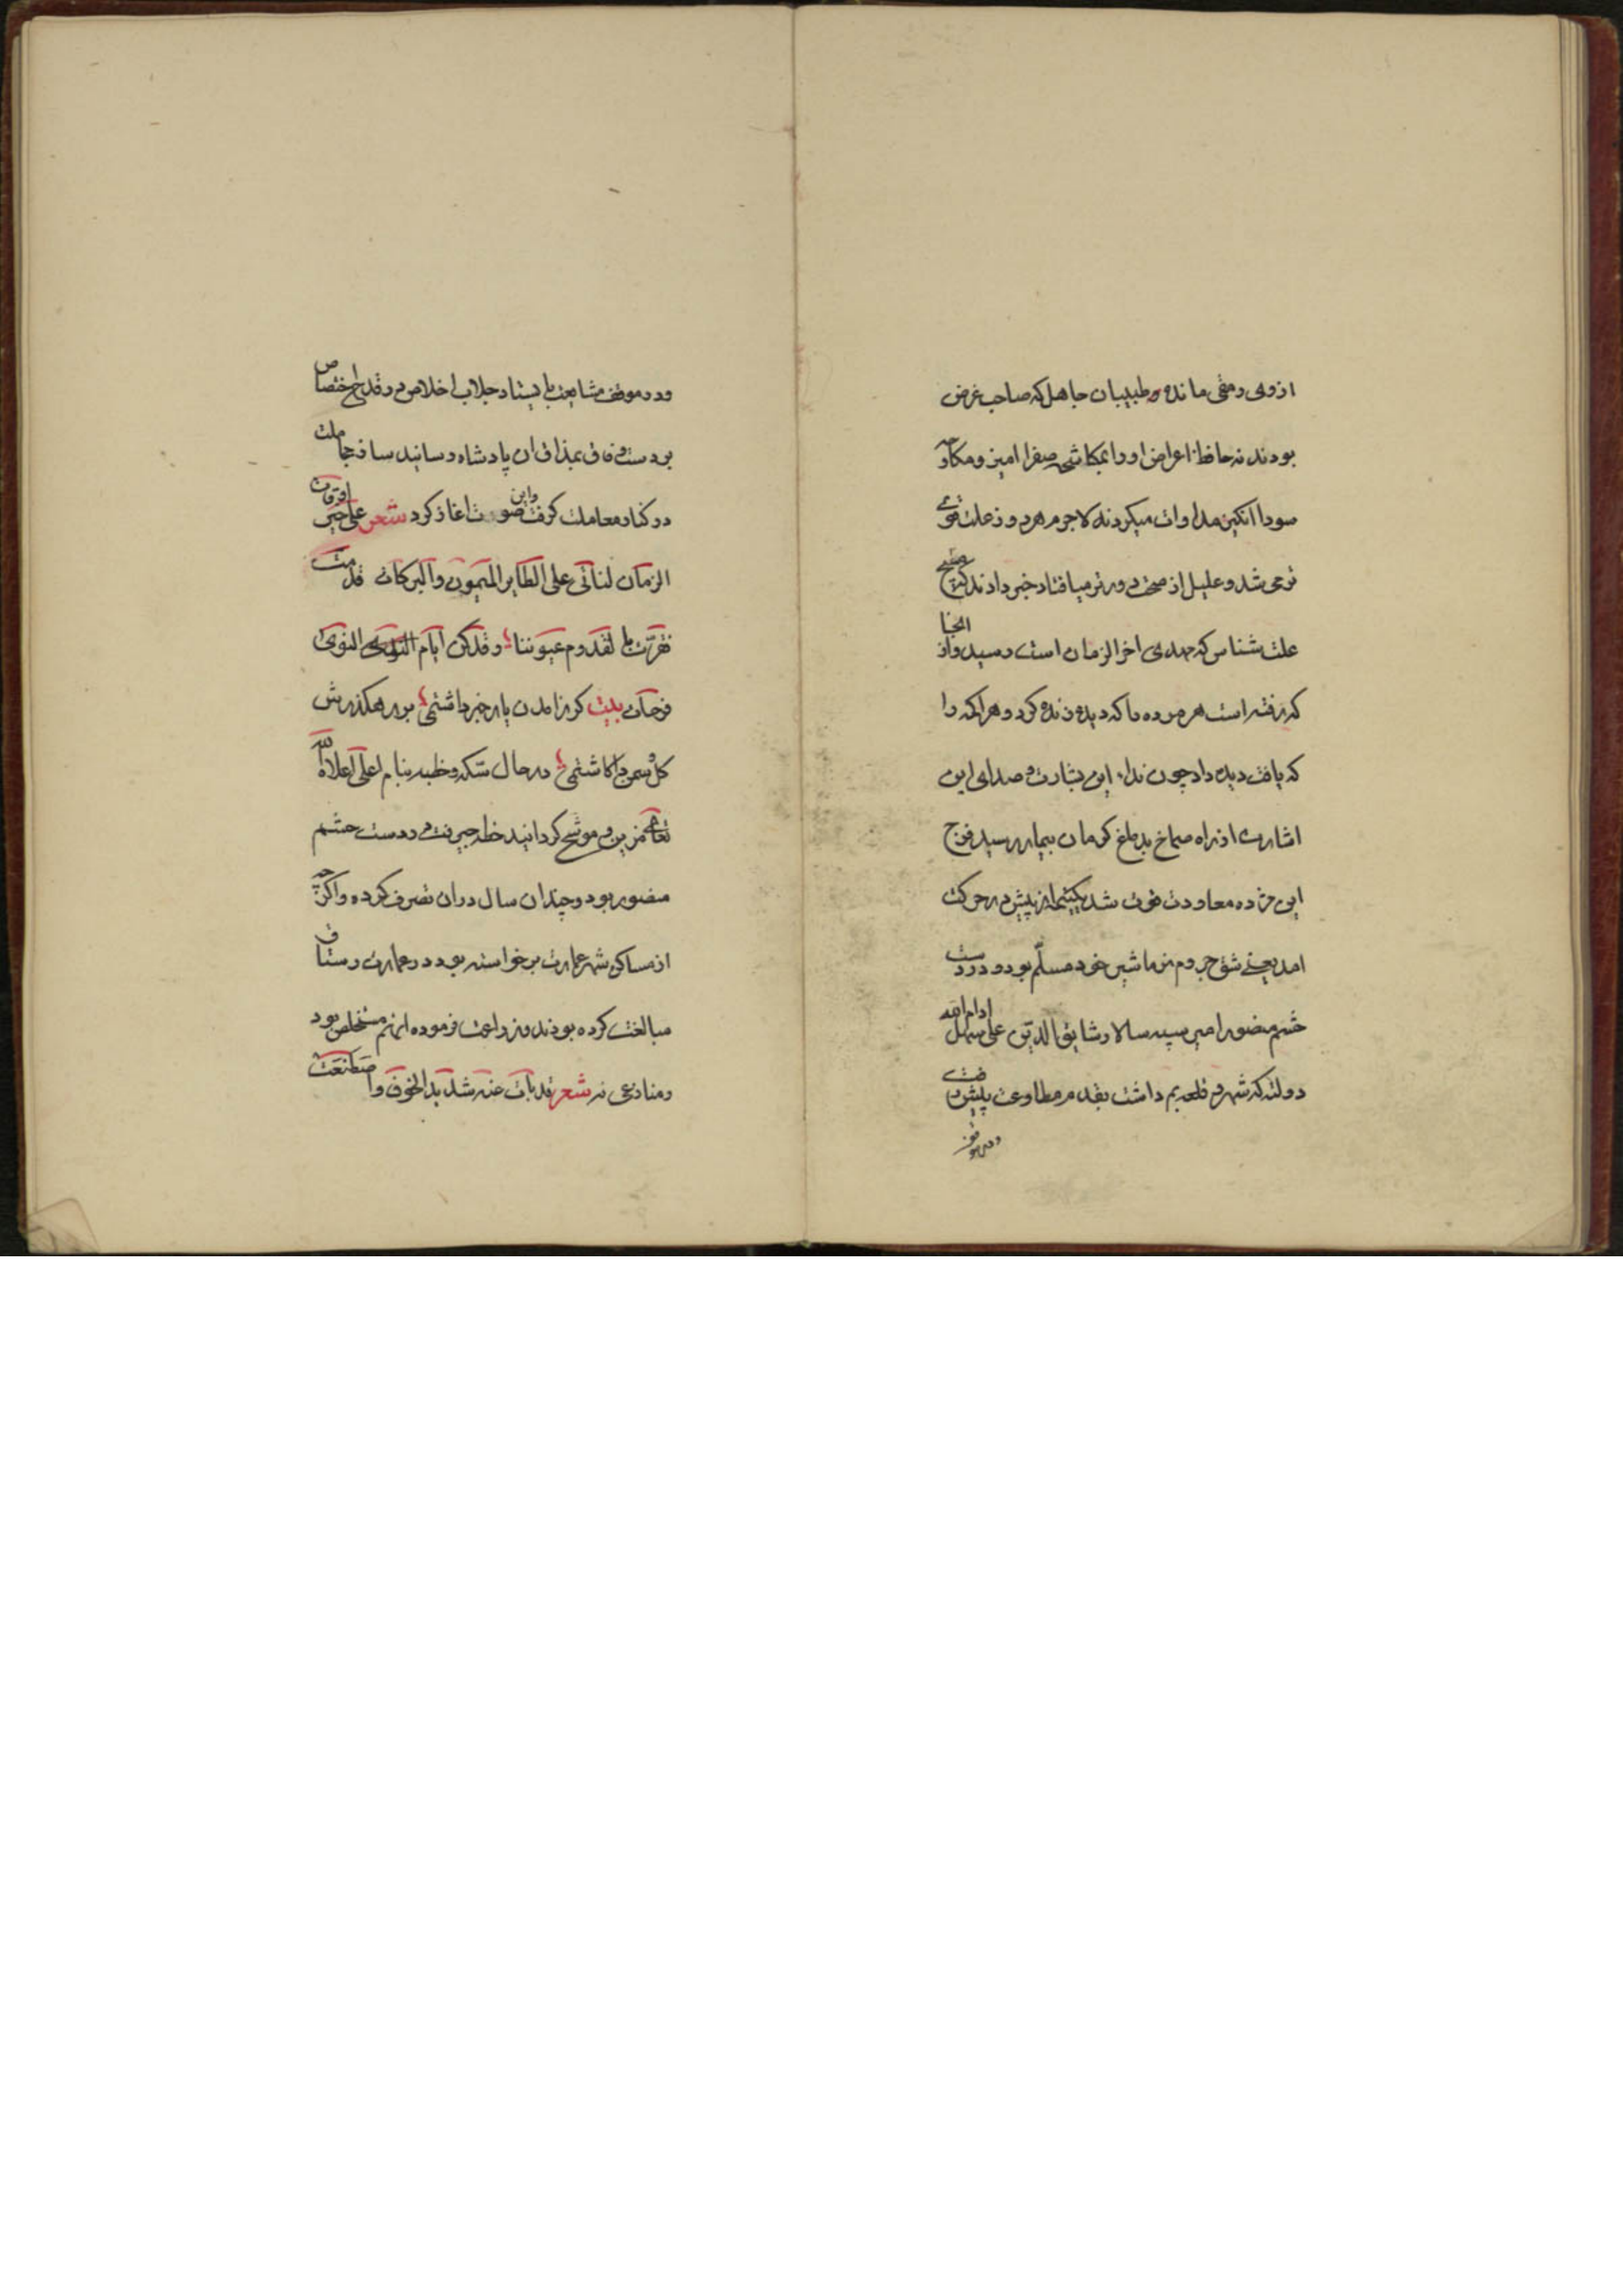 ازوی رمقی مانده و طبیبان جاهل که صاحب غرض
بودند نه حافظ اعراض او را بمکاشحه صفرا امیز و مکاوحه
سودا انکیز مداوات میکردند لاجرم هر روز علت قوی
تر می شد و علیل از صحت دورتر میافتاد خبر دادند که مسیح
علت شناس که مهدی اخر الزمان است رسید و از انجا
که رفته است هر مرده را که دیده زنده کرد و هر اکمه را
که یافت دیده داد چون نداء این بشارت و صدای این
اشارت از راه صماخ بدماغ کرمان بیمار رسید فرح
این مژده معاودت قوت شد یکنیمه از پیش در حرکت
امد یعنی شق جروم نرماشیر خود مسلم بود و در دست
حشم منصور امیر سپه سالار سابق الدین علی سهل ادام الله
دولته که شهر و قلعه بم داشت بقدم مطاوعت پیش رفت
و در موقف
ودر موقف متابعت بایستاد جلاب اخلاص در قدح اختصاص
بردست وفاق بمذاق ان پادشاه رسانید ساز مجاملت
در کنار معاملت کرفت و این صوت اغاز کرد شعر علی حین افتراق
الزمان لناتی علی الطایر المیمون والبرکات قدمت
فقرت بالقدوم عیوننا وقد کن ایام النوی
فرحات بیت کر زامدن یار خبر داشتمی بر رهکذرش
کل و سمن را کاشتمی در حال سکه و خطبه بنام اعلی اعلاه الله
تعالی مزین و موشح کردانید خطه جیرفت در دست حشم
منصور بود و چندان سال دران تصرف کرده و اکرچه
از مساکن شهر عمارت برخواسته بود در عمارت رستاق
مبالغت کرده بودند و زراعت فرموده انهم مستخلص بود
ومنازعی نه شعر قد بات عنه شدید الخوف و اصطنعت